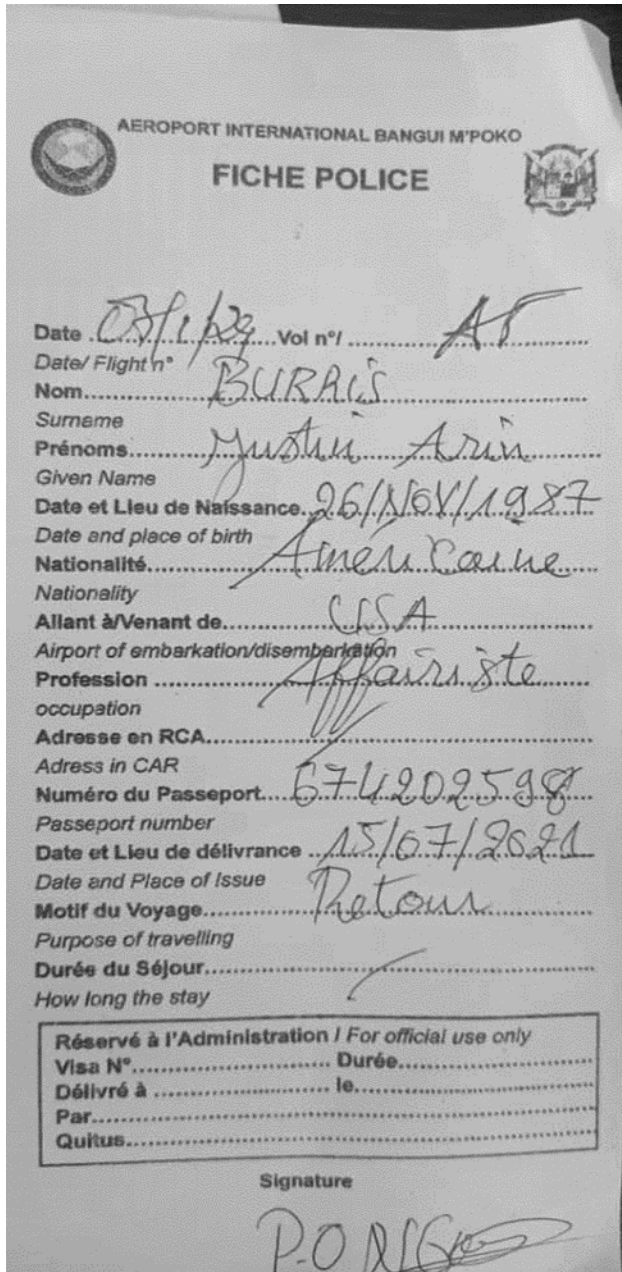 AEROPORT INTERNATIONAL BANGUI M'POKO
FICHE POLICE
Date .............. Vol n°/ .............. AF
Date/ Flight n°
Nom.............. BURRIS
Surname
Prénoms.............. Justin Arin
Given Name
Date et Lieu de Naissance.. 26/NOV/1987
Date and place of birth
Nationalité.............. Américaine
Nationality
Allant à/Venant de.............. USA
Airport of embarkation/disembarkation
Profession .............. Affairiste
occupation
Adresse en RCA..............
Adress in CAR
Numéro du Passeport.... 674202598
Passeport number
Date et Lieu de délivrance .. 15/07/2021
Date and Place of Issue
Motif du Voyage.............. Retour
Purpose of travelling
Durée du Séjour..............
How long the stay
Réservé à l'Administration / For official use only
Visa N°.............. Durée..............
Délivré à .............. le..............
Par..............
Quitus..............
Signature
P.O